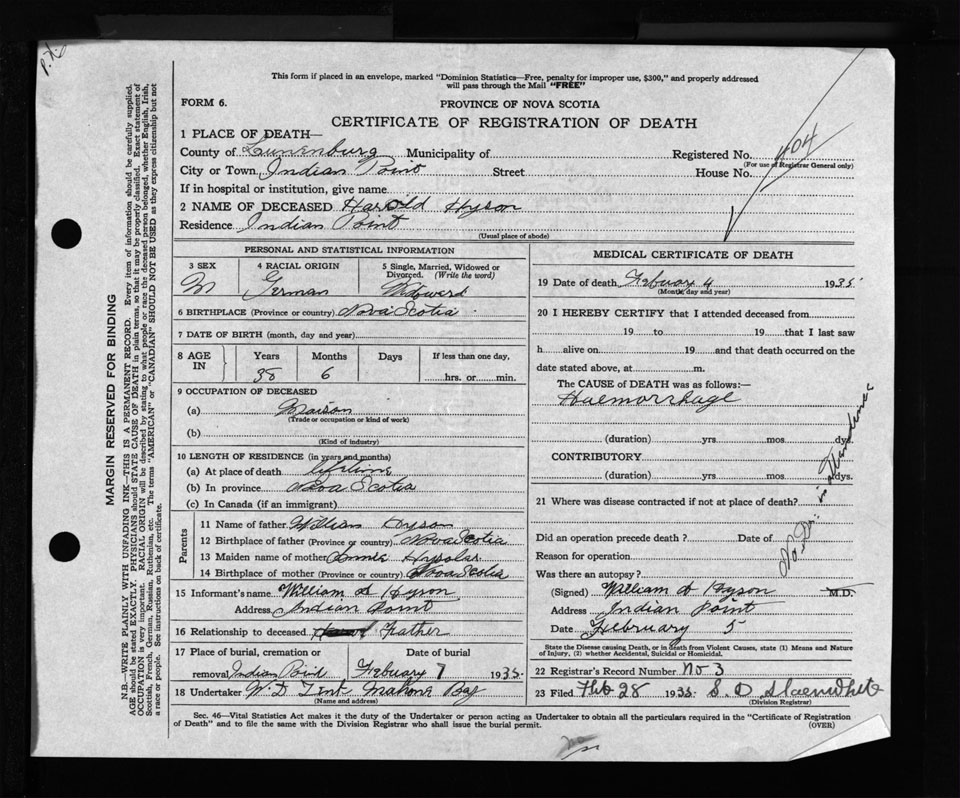 P.X.
This form if placed in an envelope, marked "Dominion Statistics—Free, penalty for improper use, $300," and properly addressed
will pass through the Mail "FREE"
FORM 6.
PROVINCE OF NOVA SCOTIA
CERTIFICATE OF REGISTRATION OF DEATH
1 PLACE OF DEATH—
County of Lunenburg Municipality of Registered No. 404
(For use of Registrar General only)
City or Town Indian Point Street House No.
If in hospital or institution, give name
2 NAME OF DECEASED Harold Hyson
Residence Indian Point
(Usual place of abode)
MARGIN RESERVED FOR BINDING
N.B.—WRITE PLAINLY WITH UNFADING INK—THIS IS A PERMANENT RECORD. Every item of information should be carefully supplied.
AGE should be stated EXACTLY. PHYSICIANS should STATE CAUSE OF DEATH in plain terms, so that it may be properly classified. Exact statement of
OCCUPATION is very important. RACIAL ORIGIN will be described by stating to what people or race the deceased person belonged, whether English, Irish,
Scottish, French, German, Russian, Ruthenian, etc. The terms "AMERICAN" or "CANADIAN" SHOULD NOT BE USED as they express citizenship but not
a race or people. See instructions on back of certificate.
PERSONAL AND STATISTICAL INFORMATION
3 SEX
M
4 RACIAL ORIGIN
German
5 Single, Married, Widowed or
Divorced. (Write the word)
Widowerd
6 BIRTHPLACE (Province or country) Nova Scotia
7 DATE OF BIRTH (month, day and year)
8 AGE
IN
Years Months Days If less than one day,
38 6 hrs. or min.
9 OCCUPATION OF DECEASED
(a) Maison
(Trade or occupation or kind of work)
(b)
(Kind of industry)
10 LENGTH OF RESIDENCE (in years and months)
(a) At place of death lifetime
(b) In province Nova Scotia
(c) In Canada (if an immigrant)
Parents
11 Name of father William Hyson
12 Birthplace of father (Province or country) Nova Scotia
13 Maiden name of mother
14 Birthplace of mother (Province or country) Nova Scotia
15 Informant's name William A Hyson
Address Indian Point
16 Relationship to deceased Father
17 Place of burial, cremation or Date of burial
removal Indian Point Febuary 7 1935
18 Undertaker W. D Zink Mahone Bay
(Name and address)
MEDICAL CERTIFICATE OF DEATH
19 Date of death Febuary 4 1935
(Month, day and year)
20 I HEREBY CERTIFY that I attended deceased from
19 to 19 that I last saw
h alive on 19 and that death occurred on the
date stated above, at m.
The CAUSE of DEATH was as follows:—
Haemorrhage
(duration) yrs. mos. dys.
CONTRIBUTORY
(duration) yrs. mos. dys.
No Dr. in attendance
21 Where was disease contracted if not at place of death?
Did an operation precede death? Date of
Reason for operation
Was there an autopsy?
(Signed) William A Hyson M.D.
Address Indian Point
Date February 5
State the Disease causing Death, or in death from Violent Causes, state (1) Means and Nature
of Injury, (2) whether Accidental, Suicidal or Homicidal.
22 Registrar's Record Number No 3
23 Filed Feb 28 1935 S. D. Slaenwhite
(Division Registrar)
Sec. 46—Vital Statistics Act makes it the duty of the Undertaker or person acting as Undertaker to obtain all the particulars required in the "Certificate of Registration
of Death" and to file the same with the Division Registrar who shall issue the burial permit. (OVER)